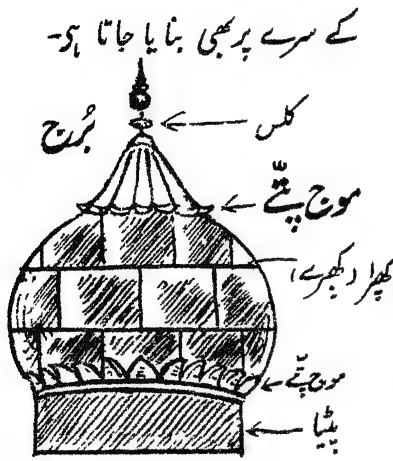 کے سرے پر بھی بنایا جاتا ہی-
کلس
بُرج
موج پتّے
کھپرا (کھپرے)
موج پتّے
پٹیا